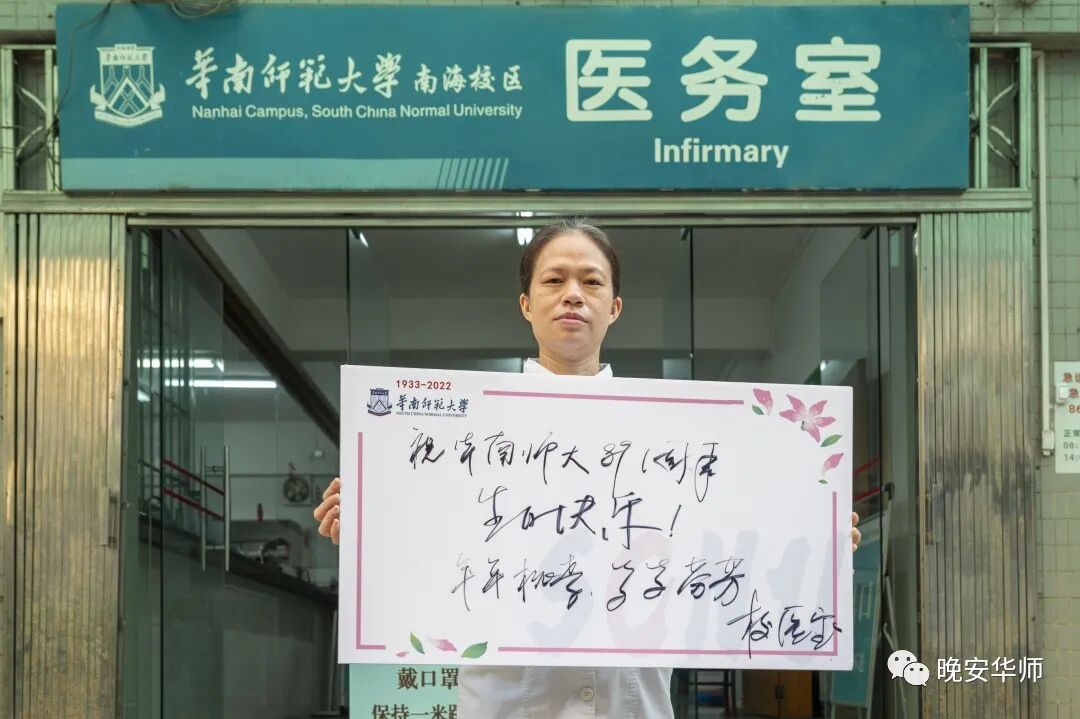 華南师范大學 南海校区
Nanhai Campus, South China Normal University
医务室
Infirmary
1933-2022
華南师范大學
SOUTH CHINA NORMAL UNIVERSITY
祝华南师大89周年
生日快乐!
年年桃李,岁岁芬芳
校医室
戴口罩
保持一米距
急
急
86
正常
08:
14:
晚安华师